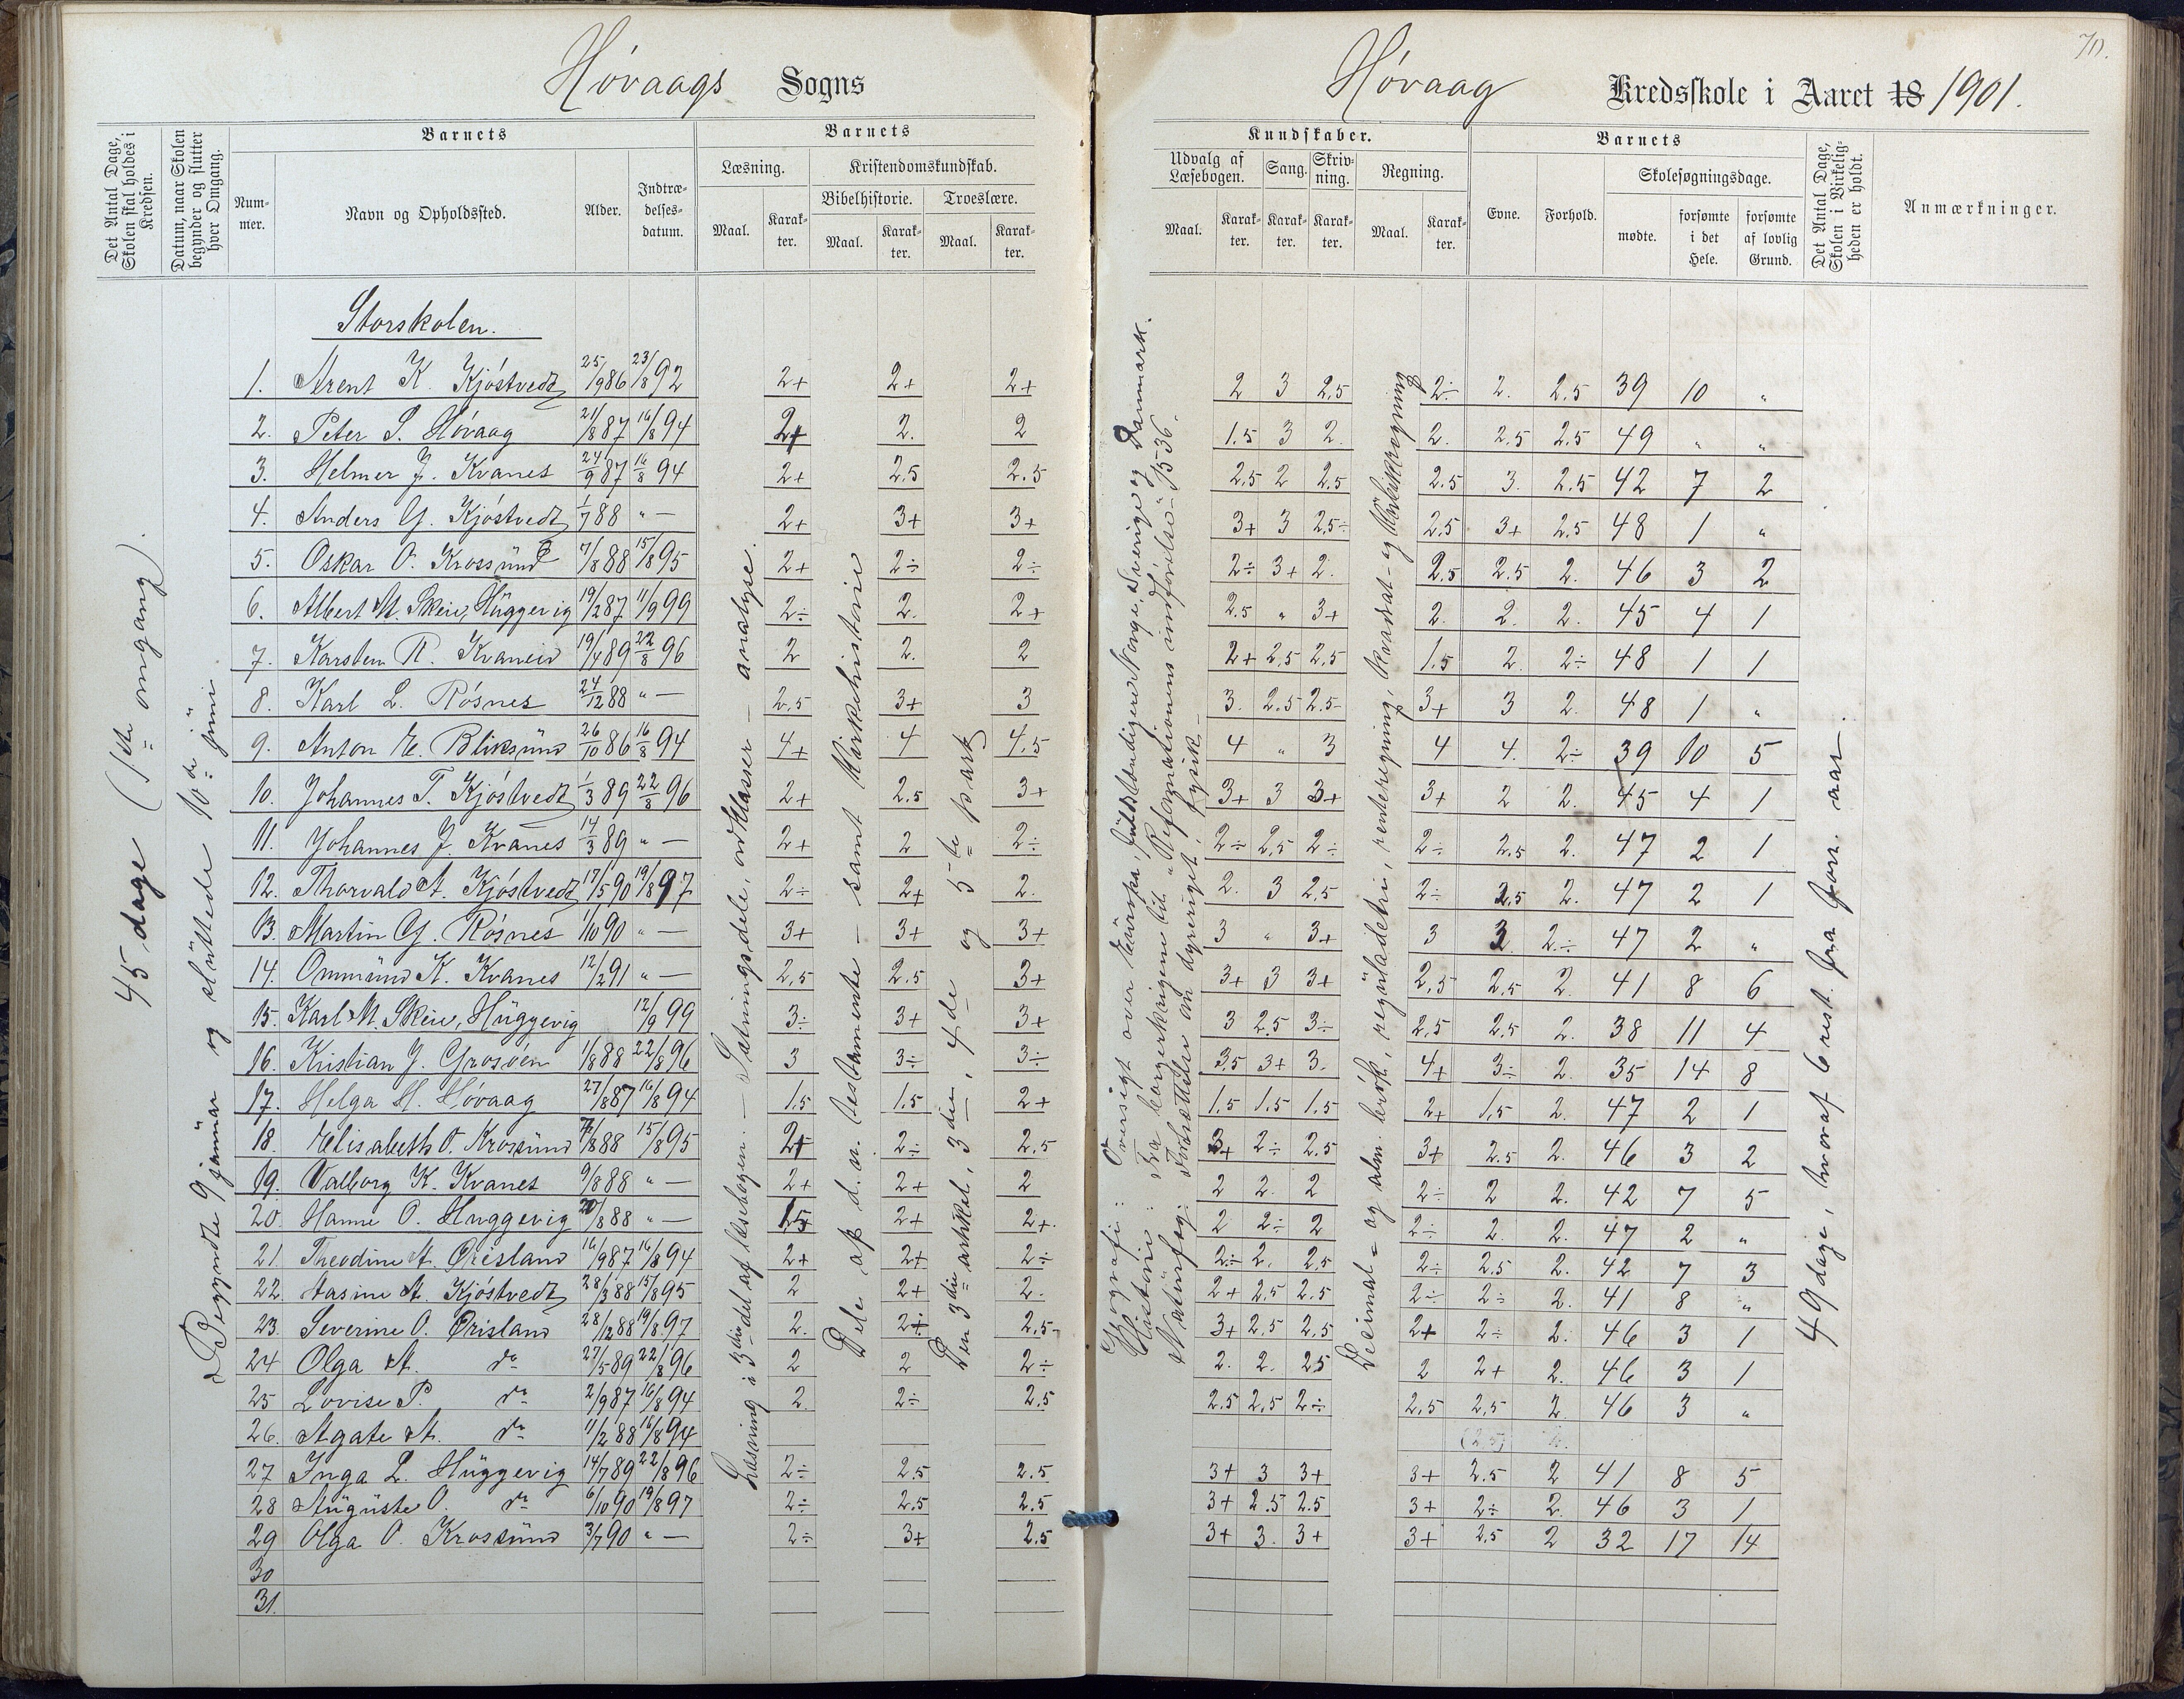 Høvaags Sogns
Høvaag Kredsskole i Aaret 18 1901.
70.
Det Antal Dage, Skolen skal holdes i Kredsen.
Datum, naar Skolen begynder og slutter hver Omgang.
Barnets
Nummer.
Navn og Opholdssted.
Alder.
Indtrædelsesdatum.
Barnets
Læsning.
Maal.
Karakter.
Kristendomskundskab.
Bibelhistorie.
Maal.
Karakter.
Troeslære.
Maal.
Karakter.
Kundskaber.
Udvalg af Læsebogen.
Maal.
Karakter.
Sang.
Karakter.
Skrivning.
Karakter.
Regning.
Maal.
Karakter.
Barnets
Evne.
Forhold.
Skolesøgningsdage.
mødte.
forsømte i det Hele.
forsømte af lovlig Grund.
Det Antal Dage, Skolen i Virkeligheden er holdt.
Anmærkninger.
45 dage (1ste omgang).
Begyndte 9 januar og sluttede 10de juni
Storskolen.
1. Arent K. Kjøstvedt 25/1986 23/892 2+ 2+ 2+ 2 3 2,5 2÷ 2. 2,5 39 10 "
2. Peter S. Høvaag 21/887 16/894 2+ 2. 2 1,5 3 2. 2. 2,5 2,5 49 " "
3. Helmer J. Kvanes 24/987 16/894 2+ 2,5 2.5 2,5 2 2,5 2,5 3. 2,5 42 7 2
4. Anders G. Kjøstvedt 1/788 " — 2+ 3+ 3+ 3+ 3 2,5÷ 2,5 3+ 2,5 48 1 "
5. Oskar O. Krossund 7/888 15/895 2+ 2÷ 2÷ 2÷ 3+ 2. 2,5 2.5 2. 46 3 2
6. Albert M. Skeie, Huggevig 19/287 11/999 2÷ 2. 2+ 2.5 " 3+ 2. 2. 2. 45 4 1
7. Karsten R. Kvaneid 19/489 22/896 2 2. 2 2+ 2,5 2,5 1.5 2. 2÷ 48 1 1
8. Karl L. Røsnes 24/1288 " — 2,5 3+ 3 3. 2.5 2.5 3+ 3 2. 48 1 "
9. Anton E. Bliksund 26/1086 16/894 4+ 4 4.5 4 " 3 4 4. 2÷ 39 10 5
10. Johannes T. Kjøstvedt 1/389 22/896 2+ 2.5 3+ 3+ 3 3+ 3+ 2 2. 45 4 1
11. Johannes J. Kvanes 14/389 " — 2+ 2 2÷ 2÷ 2,5 2÷ 2÷ 2.5 2. 47 2 1
12. Thorvald A. Kjøstvedt 17/590 19/897 2÷ 2+ 2. 2. 3 2,5 2÷ 2,5 2. 47 2 1
13. Martin G. Røsnes 1/1090 " — 3+ 3+ 3+ 3 " 3+ 3 3 2÷ 47 2 "
14. Ommund K. Kvanes 12/291 " — 2,5 2.5 3+ 3+ 3 3+ 2,5 2,5 2. 41 8 6
15. Karl M. Skeie, Huggevig 12/999 3÷ 3+ 3+ 3 2.5 3÷ 2,5 2,5 2. 38 11 4
16. Kristian J. Grosøen 1/888 22/896 3 3÷ 3÷ 3,5 3+ 3. 4+ 3÷ 2. 35 14 8
17. Helga H. Høvaag 27/887 16/894 1.5 1.5 2+ 1.5 1.5 1.5 2+ 1.5 2. 47 2 1
18. Elisabeth O. Krossund 7/888 15/895 2+ 2÷ 2.5 3+ 2÷ 2.5 3+ 2.5 2. 46 3 2
19. Valborg K. Kvanes 9/888 " — 2+ 2+ 2 2 2. 2 2÷ 2 2. 42 7 5
20. Hanne O. Huggevig 20/888 " — 1,5 2+ 2+. 2 2÷ 2 2÷ 2. 2. 47 2 "
21. Theodine A. Ørisland 16/987 16/894 2+ 2+ 2÷ 2÷ 2. 2,5 2÷ 2.5 2. 42 7 3
22. Aasine A. Kjøstvedt 28/388 15/895 2 2+ 2. 2+ 2,5 2,5 2÷ 2÷ 2. 41 8 "
23. Severine O. Ørisland 28/1288 19/897 2. 2÷ 2,5 3+ 2,5 2,5 2+ 2÷ 2. 46 3 1
24 Olga A. do 27/589 22/896 2 2 2÷ 2. 2. 2.5 2 2+ 2. 46 3 1
25 Lovise P. do 2/987 16/894 2. 2÷ 2,5 2,5 2,5 2÷ 2,5 2,5 2. 46 3 "
26. Agate A. do 11/288 16/894 (2,5)
27 Inga L. Huggevig 14/789 22/896 2÷ 2.5 2.5 3+ 3 3+ 3+ 2.5 2 41 8 5
28 Auguste O. do 6/1090 19/897 2÷ 2.5 2.5 3+ 2.5 2.5 3+ 2÷ 2. 46 3 1
29 Olga O. Krossund 3/790 " — 2÷ 3+ 2.5 3+ 3. 3+ 3+ 2,5 2 32 17 14
30
31.
Læsning i 3die del af læsebogen. — Sætningsdele, ordklasser — analyse.
Dele af d. n. testamente — samt Kirkehistorie
Den 3die artikel, 3die, 4de og 5te part
Geografi: Oversigt over Europa, fuldstændigere Norge, Sverige og Danmark.
Historie: Fra borgerkrigene til "Reformationens indførelse" 1536.
Naturfag: Fortsættelse om dyreriget, fysik
Decimal- og alm. brøk, reguladetri, renteregning, kvadrat- og Kubikregning
49 dage, hvoraf 6 rest. fra forr. aar.